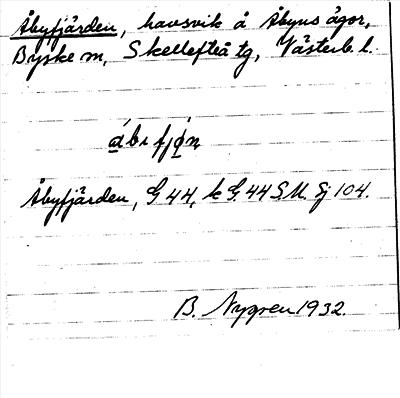 Åbyfjärden, havsvik å Åbyns ägor,
Byske sn, Skellefteå tg, Västerb. l.
Åbyfjärden, G 44, k G. 44 S.U. Sj 104.
B. Nygren 1932.